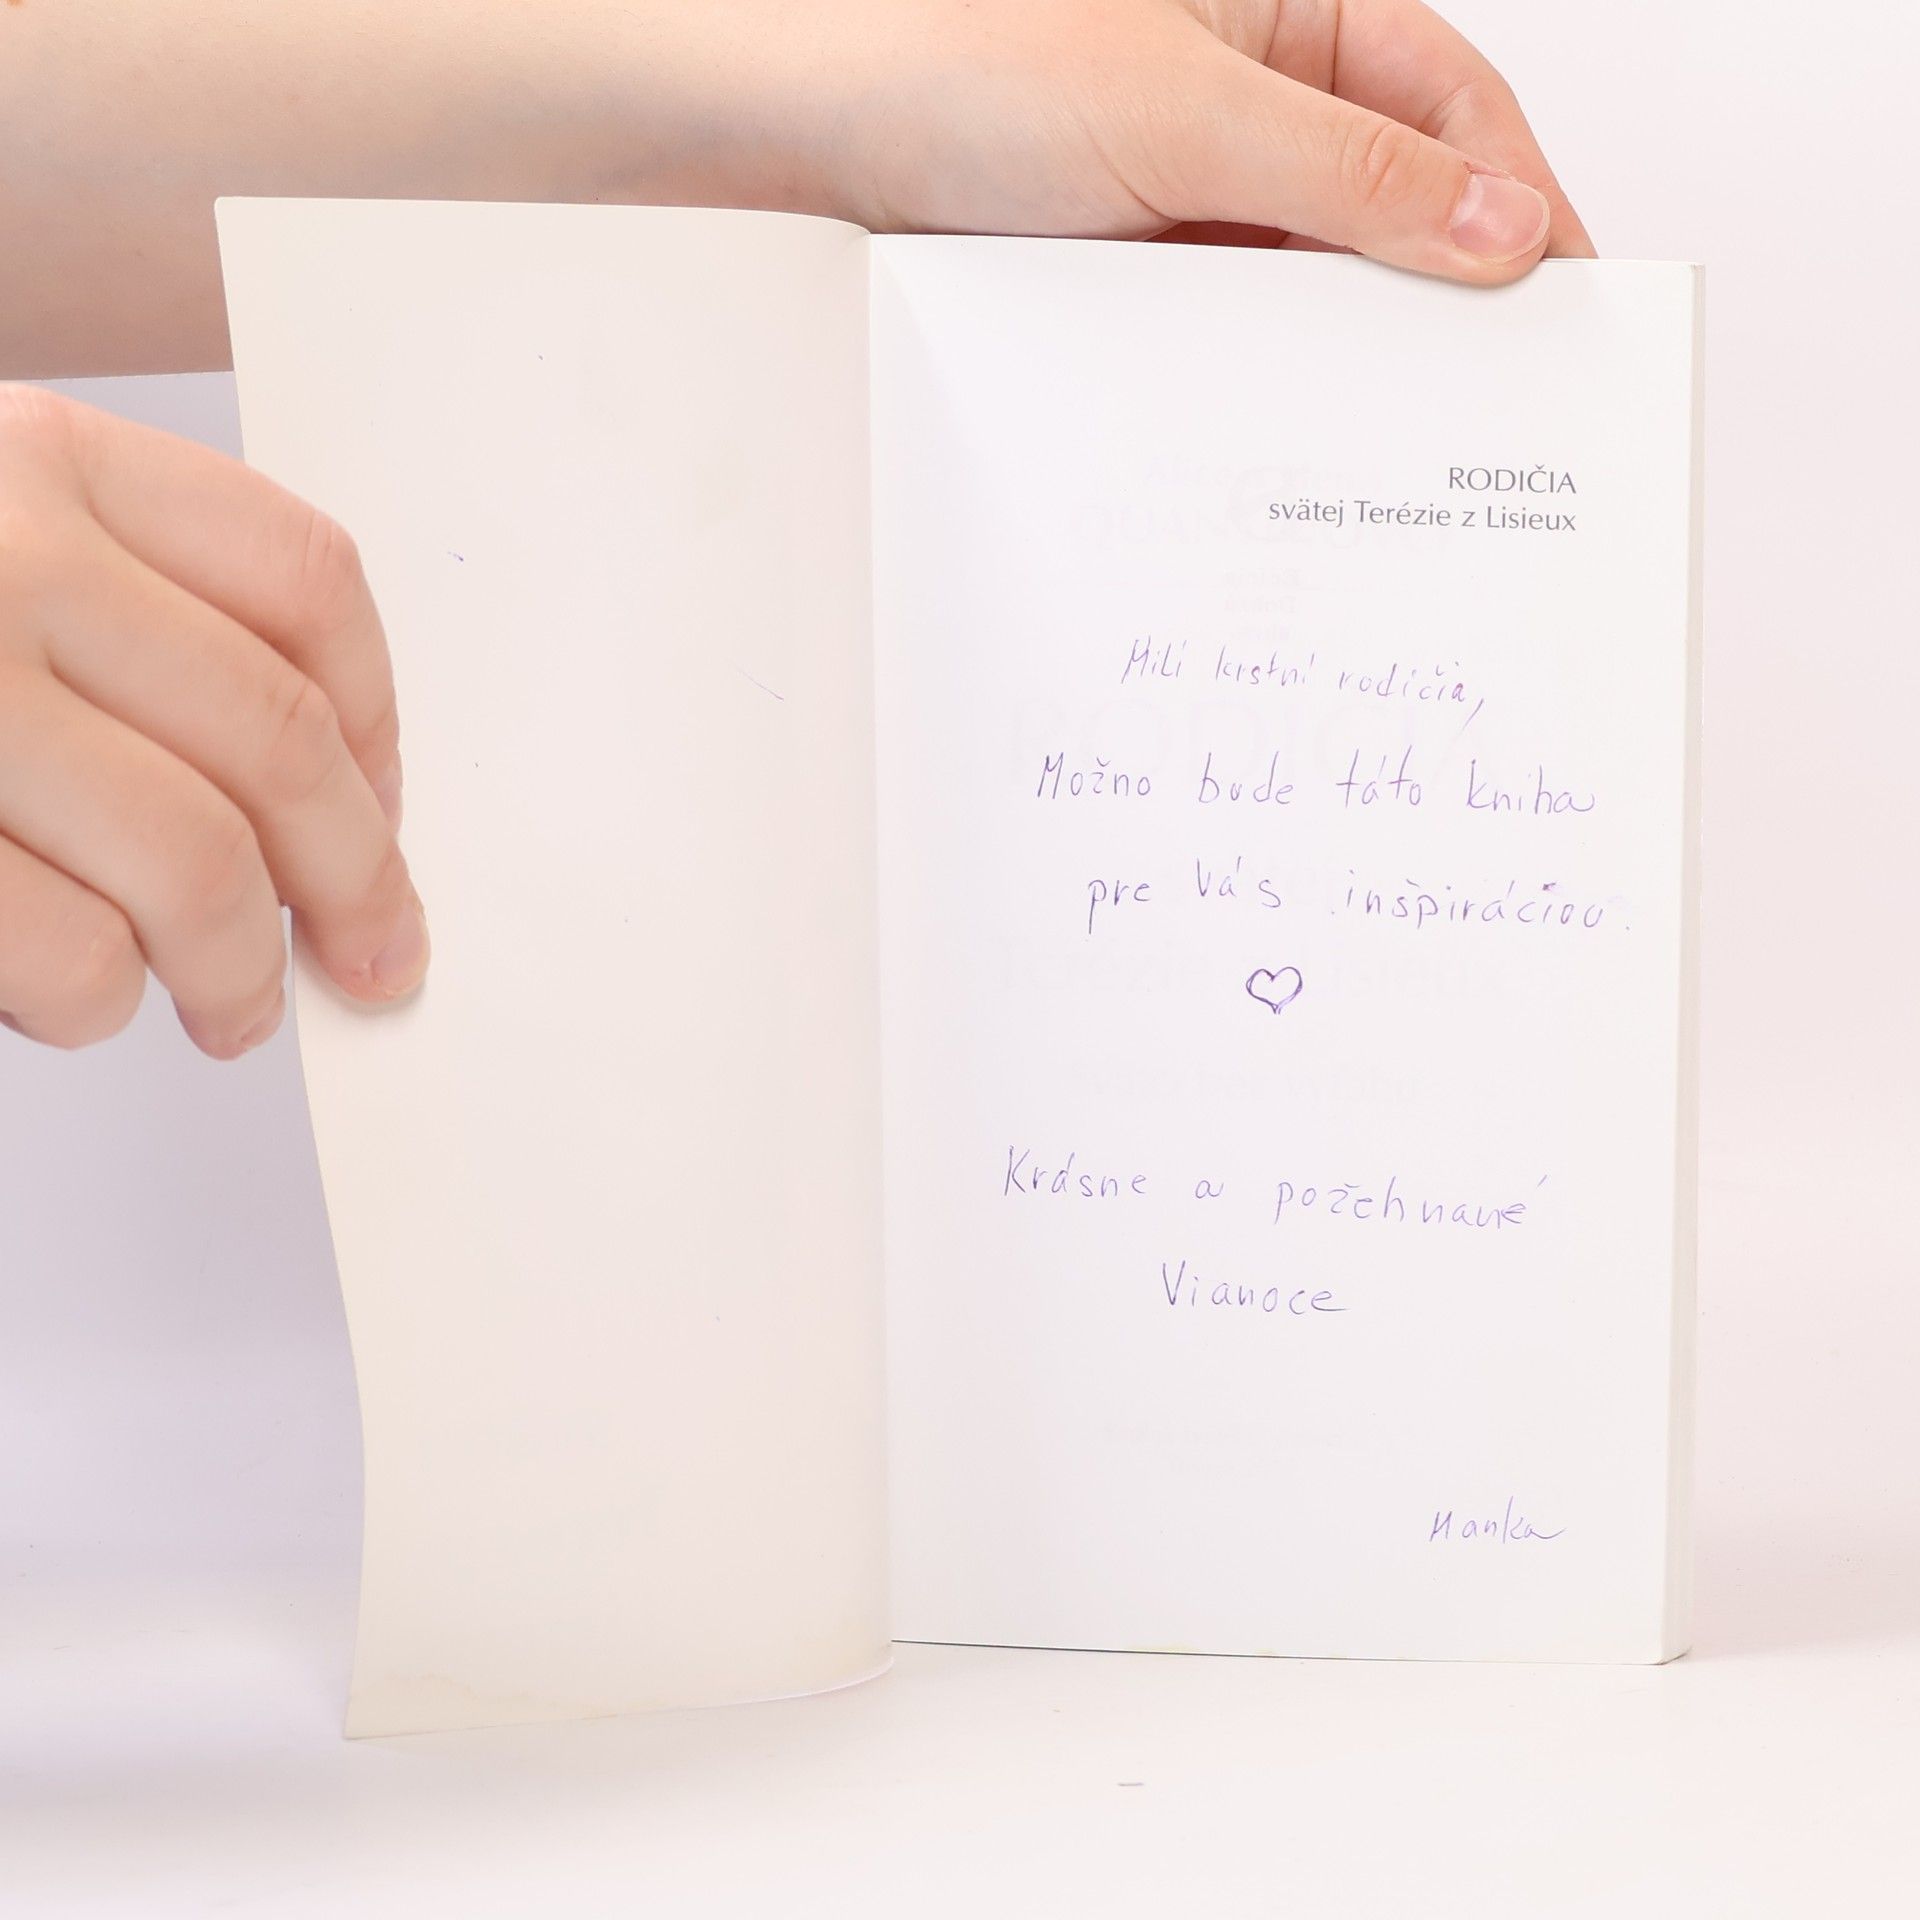 RODIČIA
svätej Terézie z Lisieux
Milí krstní rodičia,
Možno bude táto kniha
pre Vás inšpiráciou.
Krásne a požehnané
Vianoce
Manka